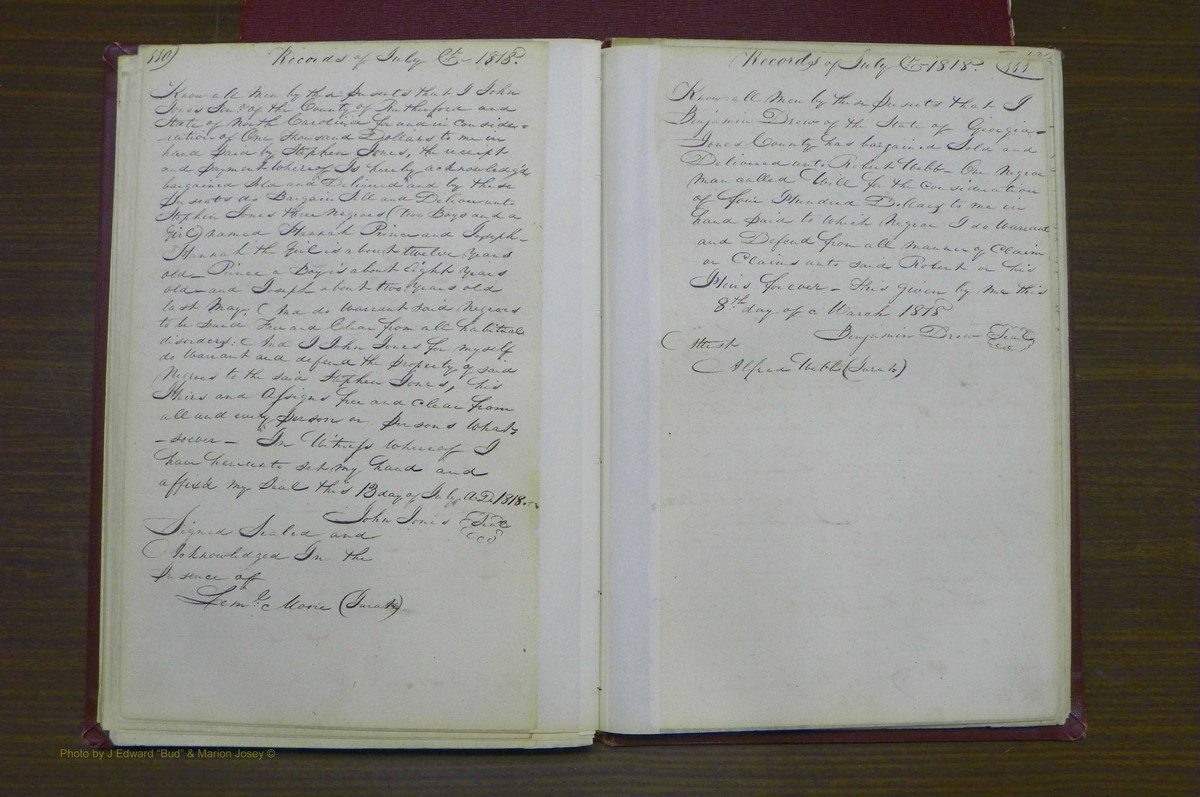 110)
Records of July Ct. 1818.
Know all men by these presents that I John
Jones Senr. of the County of Rutherford and
State of North Carolina for and in consider-
ration of One Thousand Dollars to me in
hand paid by Stephen Jones, the receipt
and payment whereof Is hereby acknowledg'd
bargained Sold and Delivered and by these
presents do Bargain Sell and Deliver unto
Stephen Jones three Negroes (two Boys and a
Girl) named Hannah Prince and Joseph-
Hannah the Girl is about twelve years
old- Prince a Boy is about Eight years
old- and Joseph about two years old
last May. And do Warrant said Negroes
to be sound Free and Clear from all habitual
disorders: And I John Jones for myself
do Warrant and defend the property of said
Negroes to the said Stephen Jones, his
Heirs and Assigns free and clear from
all and every person or persons whats-
-soever- In Witness whereof I
have hereunto set my hand and
affixd my Seal this 13 day of July A.D. 1818.
John Jones Seal
Signed Sealed and
Acknowledged In the
presence of
Lemc. Moore (Jurat)
Records of July Ct. 1818. 111
Know all Men by these presents that I
Benjamin Drew of the State of Georgia-
Jones County has bargained Sold and
Delivered unto Robert Webb One Negroe
man called Will for the consideration
of four Hundred Dollars to me in
hand paid to which Negroe I do Warrant
and Defend from all manner of Claim
or Claims unto said Robert or his
Heirs forever- this given by me this
8th. day of March 1818
Benjamin Drew Seal
Attest
Alfred Webb (Jurat)
Photo by J Edward "Bud" & Marion Josey ©